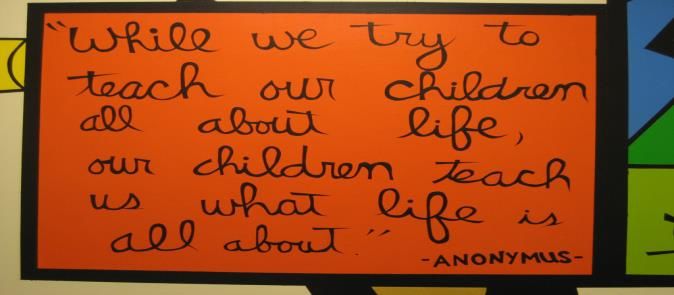 "While we try to
teach our children
all about life,
our children teach
us what life is
all about."
-ANONYMUS-